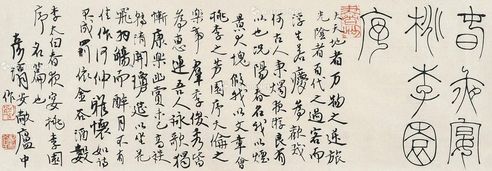 春夜宴
桃李園
序
夫天地者万物之逆旅
光陰者百代之過客而
浮生若夢為歡幾
何古人秉燭夜遊良有
以也况陽春召我以煙
景大塊假我以文章會
桃李之芳園序天倫之
樂事羣季俊秀皆
為惠連吾人詠歌獨
慚康樂幽賞未已高談
轉清開瓊筵以坐花
飛羽觴而醉月不有
佳作何伸雅懷如詩
不成罰依金谷酒數
李太白春夜宴桃李園
序右篇也
安敞廬中
作